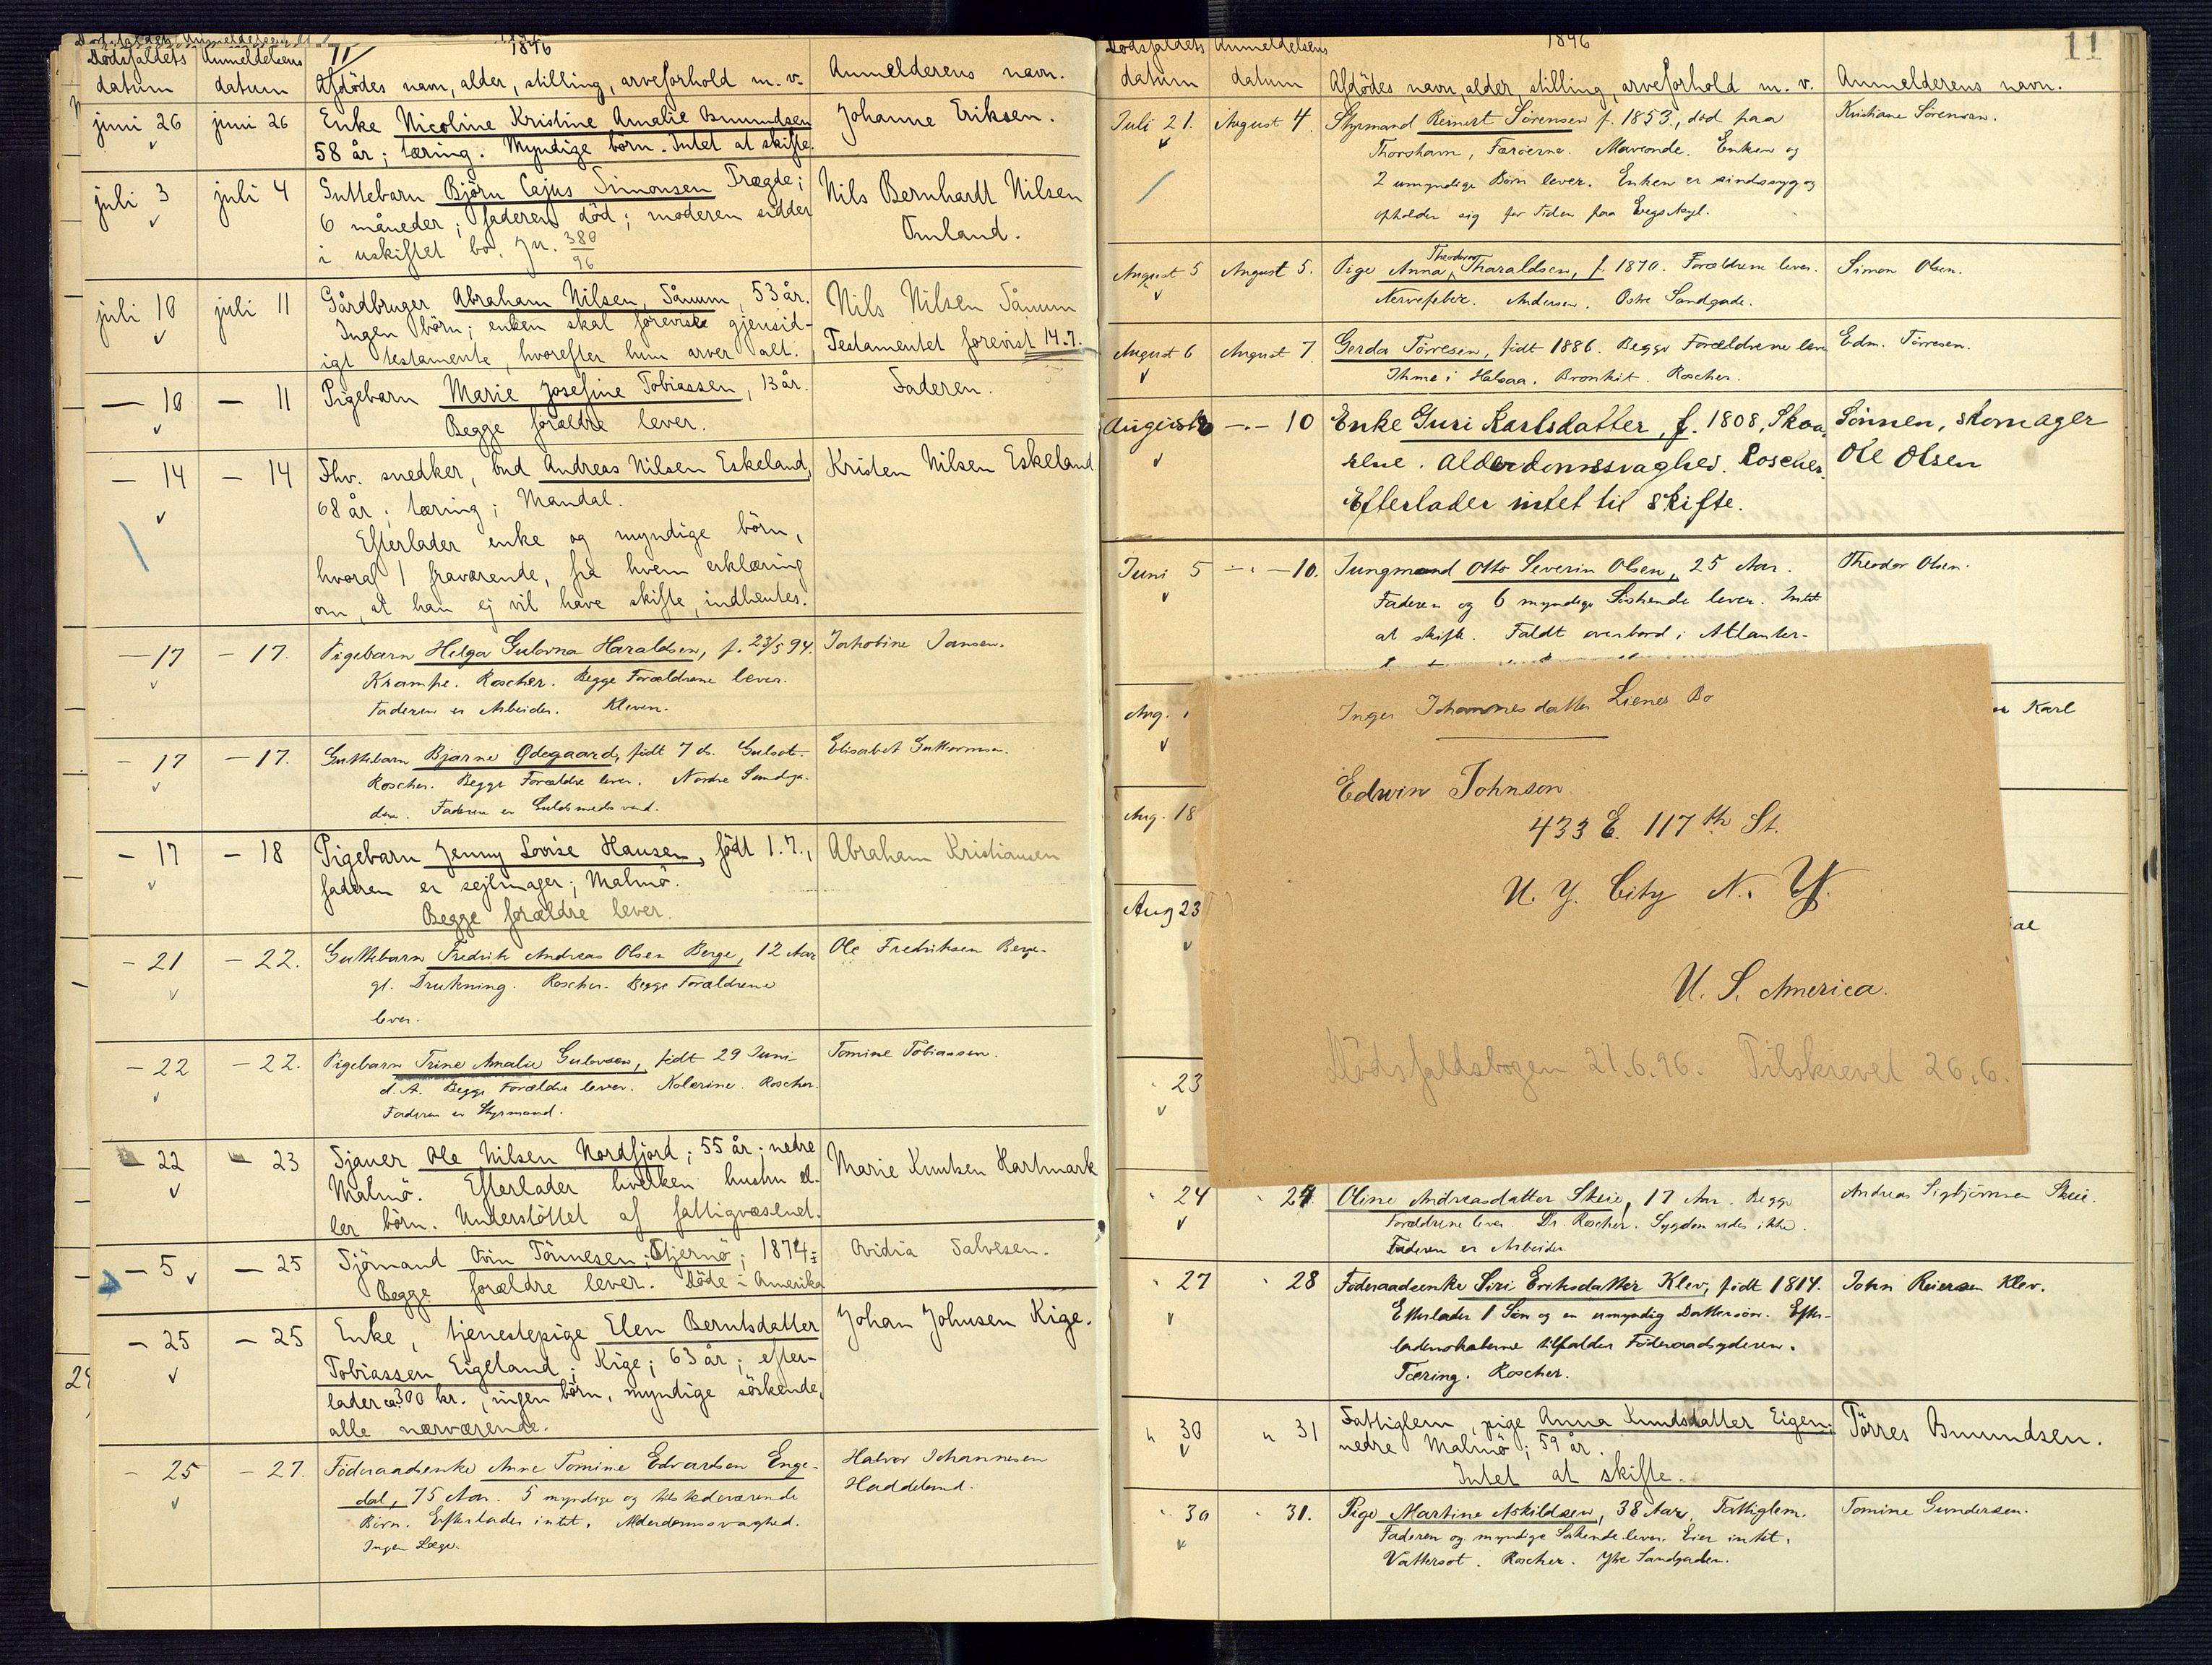 1896
Dödsfaldets datum
Anmeldelsens datum
Afdödes navn, alder, stilling, arveforhold m. v.
Anmelderens navn.
juni 26
juni 26
Enke Nicoline Kristine Amalie Bmundsen
58 år; tæring. Myndige börn. Intet at skifte.
Johanne Eriksen.
juli 3
juli 4
Guttebarn Björn Cajus Simonsen Trægde;
6 måneder; faderen död; moderen sidder
i uskiftet bo. Jn. 380/96
Nils Bernhardt Nilsen
Omland.
juli 10
juli 11
Gårdbruger Abraham Nilsen, Sånum, 53 år.
Ingen börn; enken skal forevise gjensid-
igt testamente, hvorefter hun arver alt.
Nils Nilsen Sånum
Testamentet forevist 14.7.
— 10
— 11
Pigebarn Marie Josefine Tobiassen, 13 år.
Begge forældre lever.
Faderen.
— 14
— 14
Fhv. snedker, Andreas Nilsen Eskeland,
68 år; tæring; Mandal.
Efterlader enke og myndige börn,
hvoraf 1 fraværende, fra hvem erklæring
om, at han ej vil have skifte, indhentes.
Kristen Nilsen Eskeland
— 17
— 17.
Pigebarn Helga Gulovna Haraldsen, f. 23/5 94.
Krampe. Roscher. Begge Forældrene lever.
Faderen er Arbeider. Kleven.
Jakobine Jansen.
— 17
— 17.
Guttebarn Bjarne Ødegaard, födt 7 ds. Gulsot.
Roscher. Begge Forældre lever. Nordre Sandga-
den. Faderen er Guldsmedsvend.
Elisabet Guttormsen.
— 17
— 18
Pigebarn Jenny Lovise Hansen, födt 1.7.,
faderen er sejlmager; Malmö.
Begge forældre lever.
Abraham Kristiansen
— 21
— 22.
Guttebarn Fredrik Andreas Olsen Berge, 12 Aar
gl. Drukning. Roscher. Begge Forældrene
lever.
Ole Fredriksen Berge.
— 22
— 22.
Pigebarn Trine Amalie Gulovsen, födt 29 Juni
d. A. Begge Forældre lever. Kolerine. Roscher.
Faderen er Styrmand.
Tomine Tobiassen.
— 22
— 23
Sjauer Ole Nilsen Nordfjord; 55 år; nedre
Malmö. Efterlader hverken hustru el-
ler börn. Understöttet af fattigvæsenet.
Marie Knutsen Hartmark
— 5
— 25
Sjömand Ovin Tönnesen; Stjernö; 1874;
Begge forældre lever. Döde i Amerika
Ovidia Salvesen.
— 25
— 25
Enke, tjenestepige Elen Berntsdatter
Tobiassen Eigeland; Kige; 63 år; efter-
lader ca 300 kr., ingen börn, myndige söskende,
alle nærværende.
Johan Johnsen Kige.
— 25
— 27.
Föderaadsenke Anne Tomine Edvardsen Enge-
dal, 75 Aar. 5 myndige og tilstedeværende
Börn. Efterlader intet. Alderdomssvaghed.
Ingen Læge.
Halvor Johannesen
Haddeland.
1896
11
Dödsfaldets datum
Anmeldelsens datum
Afdödes navn, alder, stilling, arveforhold m. v.
Anmelderens navn.
Juli 21.
August 4.
Styrmand Reinert Sörensen f. 1853, död paa
Thorshavn, Færöerne. Maveonde. Enken og
2 umyndige Börn lever. Enken er sindssyg og
opholder sig for Tiden paa Asyl.
Kristiane Sörensen.
August 5
August 5.
Pige Anna Theodora Tharaldsen, f. 1870. Forældrene lever.
Nervefeber. Andersen. Östre Sandgade.
Simon Olsen.
August 6
August 7
Gerda Törresen, födt 1886. Begge Forældrene lever
Ihme i Halsaa. Bronkit. Roscher.
Edm. Törresen.
August 8
— 10
Enke Guri Karlsdatter, f. 1808, Skoa-
rene. Alderdomssvaghed. Roscher.
Efterlader intet til skifte.
Sönnen, skomager
Ole Olsen
Juni 5
— 10.
Jungmand Otto Severin Olsen, 25 Aar.
Faderen og 6 myndige Söskende lever. Intet
at skifte. Faldt overbord i Atlanter-
Theodor Olsen.
Aug.
Karl
Aug. 18
Aug 23
23
Inger Johannesdatter Lienes Bo
Edwin Johnson
433 E. 117th St.
N. Y. City N. Y.
U. S. America.
Dödsfaldsbogen 21.6.96. Tilskrevet 26.6.
" 24
" 24
Oline Andreasdatter Skeie, 17 Aar. Begge
Forældrene lever. Dr. Roscher. Sygdom vides ikke.
Faderen er Arbeider
Andreas Sigbjörnsen Skeie.
" 27
" 28
Föderaadsenke Siri Eriksdatter Klev, födt 1814.
Efterlader 1 Sön og en umyndig Dattersön. Efter-
ladenskaberne tilfalder Föderaadsyderen.
Tæring. Roscher.
John Reiersen Klev.
" 30
" 31
Fattiglem, pige Anna Knudsdatter Eigen;
nedre Malmö; 59 år.
Intet at skifte.
Törres Bmundsen.
" 30
" 31.
Pige Martine Askildsen, 38 Aar, Fattiglem.
Faderen og myndige Söskende lever. Eier intet.
Vattersot. Roscher. Ytre Sandgaden.
Tomine Gundersen.